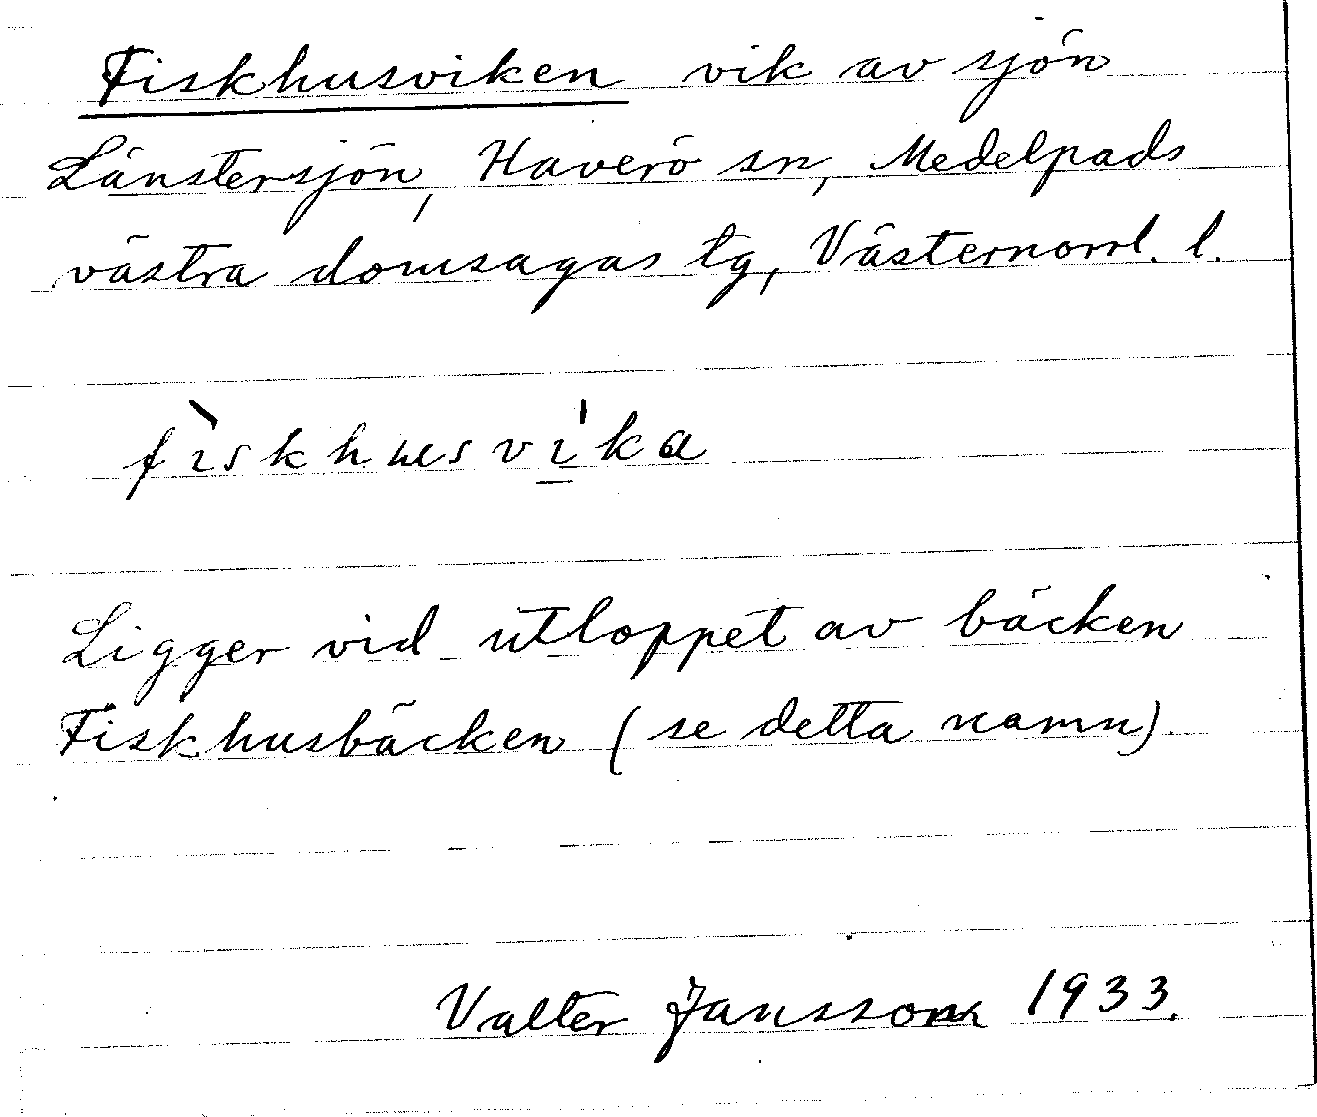 Fiskhusviken vik av sjön
Länstersjön, Haverö sn, Medelpads
västra domsagas tg, Västernorrl. l.
fìskhusvi̱̍ka
Ligger vid utloppet av bäcken
Fiskhusbäcken (se detta namn)
Valter Jansson 1933.